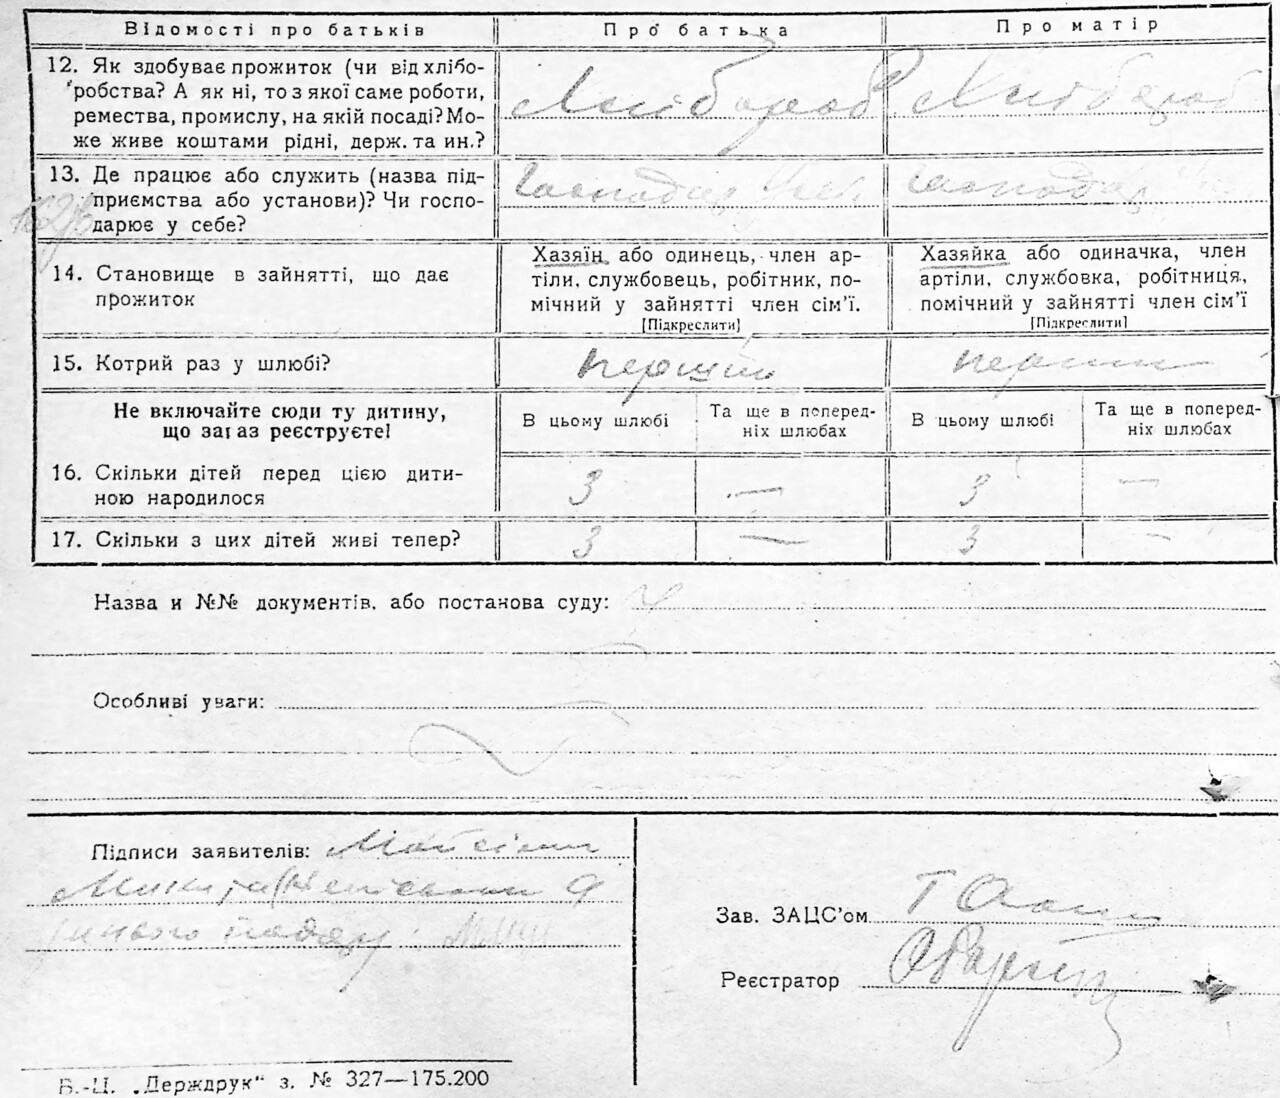 Відомості про батьків Про батька Про матір
12. Як здобуває прожиток (чи від хлібо-
робства? А як ні, то з якої саме роботи,
ремества, промислу, на якій посаді? Мо-
же живе коштами рідні, держ. та ин.?
Хлібороб Хлібороб
13. Де працює або служить (назва під-
приємства або установи)? Чи госпо-
дарює у себе?
Господар
14. Становище в зайнятті, що дає
прожиток
Хазяїн або одинець, член ар-
тіли, службовець, робітник, по-
мічний у зайнятті член сім’ї.
[Підкреслити]
Хазяйка або одиначка, член
артіли, службовка, робітниця,
помічний у зайнятті член сім’ї
[Підкреслити]
15. Котрий раз у шлюбі? перший перший
Не включайте сюди ту дитину,
що зараз реєструєте!
В цьому шлюбі
Та ще в поперед-
ніх шлюбах
В цьому шлюбі
Та ще в поперед-
ніх шлюбах
16. Скільки дітей перед цією дити-
ною народилося
3 — 3 —
17. Скільки з цих дітей живі тепер? 3 — 3 —
Назва и №№ документів, або постанова суду:
Особливі уваги:
Підписи заявителів:
Зав. ЗАЦС’ом
Реєстратор
В.-Ц. „Держдрук“ з. № 327—175.200